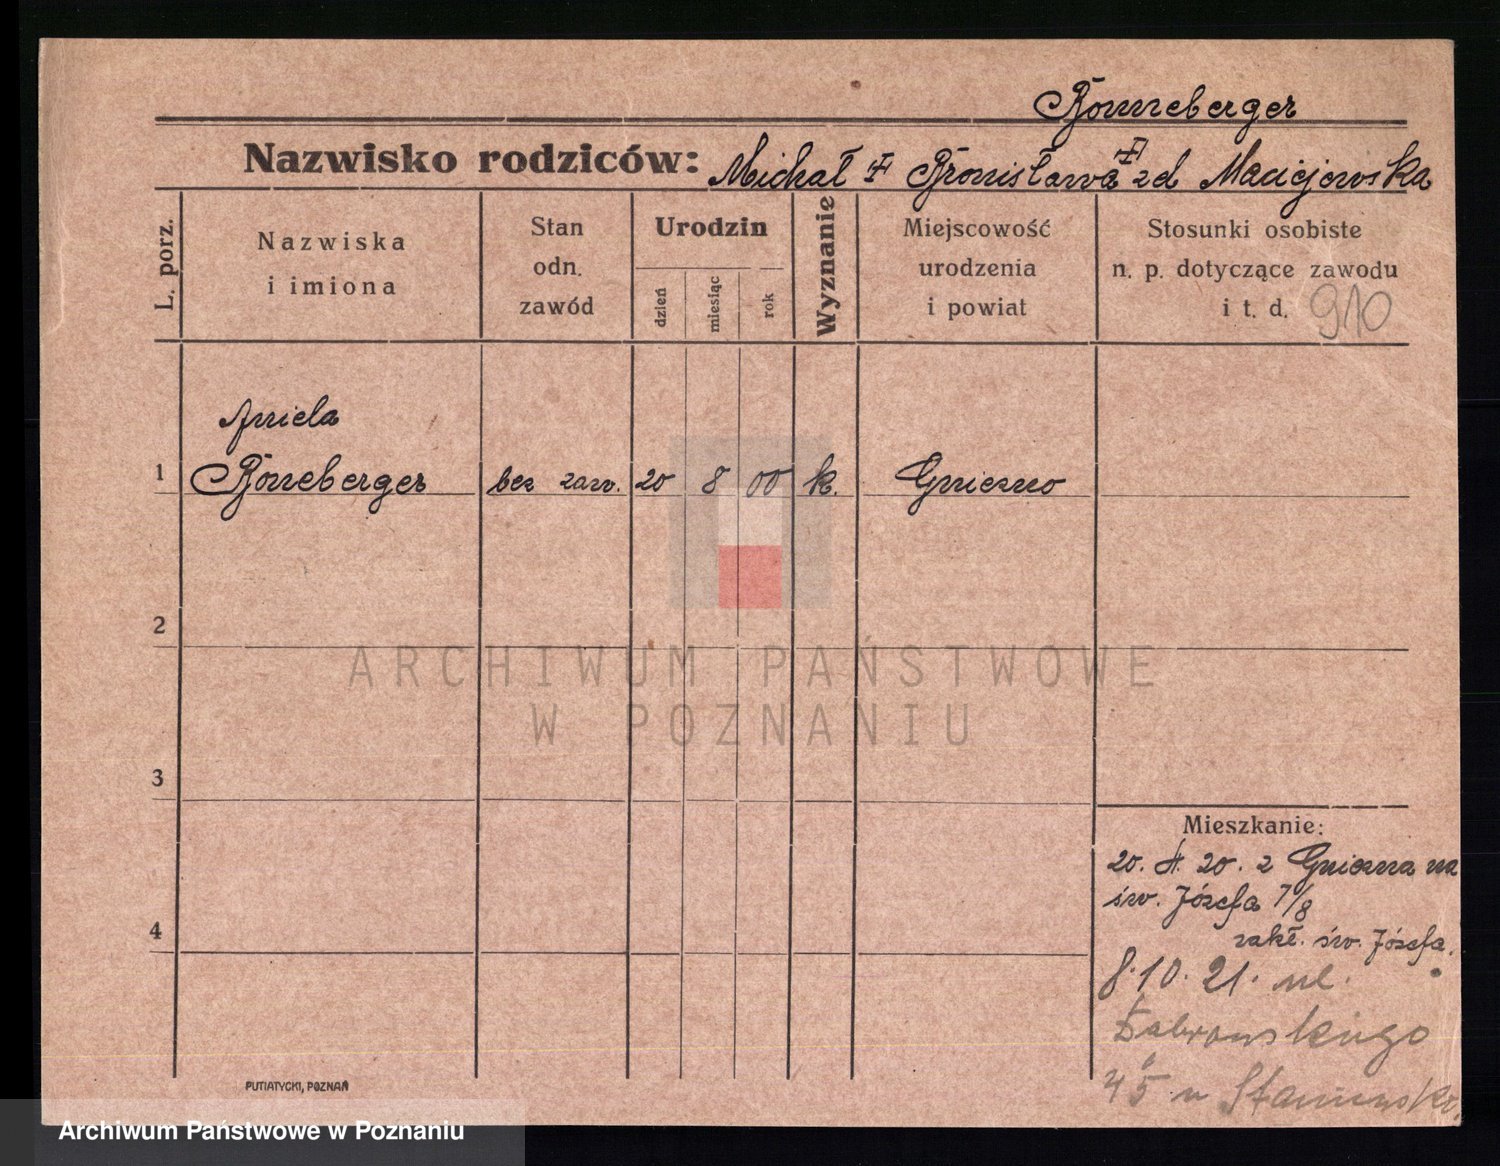 Ronneberger
Nazwisko rodziców: Michał ‡ Bronisława ‡ zd Maciejewska
L. porz.
Nazwiska
i imiona
Stan
odn.
zawód
Urodzin
dzień
miesiąc
rok
Wyznanie
Miejscowość
urodzenia
i powiat
Stosunki osobiste
n. p. dotyczące zawodu
i t. d. 910
Aniela
1 Roneberger bez zaw. 20 8 00 k. Gniezno
2
3
4
Mieszkanie:
20. 4. 20. z Gniezna na
św. Józefa 7/8
zakł. św. Józefa.
8.10.21. ul.
Dabrowskiego
45 u
PUTIATYCKI, POZNAŃ
ARCHIWUM PAŃSTWOWE
W POZNANIU
Archiwum Państwowe w Poznaniu